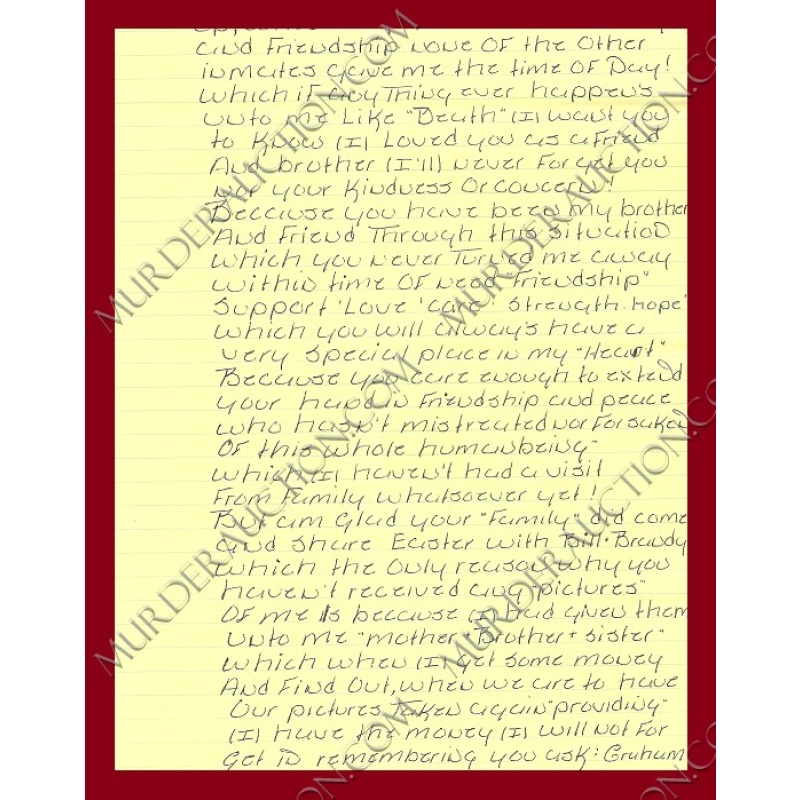 and Friendship none OF the Other
inmates gave me the time OF Day!
which if any Thing ever happen's
unto me Like "Death" (I) want you
to Know (I) Loved you as a friend
And brother (I'll) never Forget you
Nor your Kindness Or concern!
Because you have been my brother
And Friend Through this situation
which you never Turned me away
within time OF need "Friendship"
Support 'Love 'care' Strength hope'
which you will always have a
very special place in my "Heart"
Because you care enough to extend
your hand in Friendship and peace
who hasn't mistreated nor Forsaken
OF this whole humanbeing"
which (I) haven't had a visit
From Family whatsoever yet!
But am Glad your "Family" did come
and share Easter with Bill + Brandy
which the Only reason why you
haven't received any "pictures"
OF me is because (I) had given them
unto me "mother + Brother + sister"
which when (I) get some money
And Find Out, when we are to have
Our pictures Taken again "providing"
(I) have the money (I) will not For
get in remembering you ask: Graham
MURDERAUCTION.COM